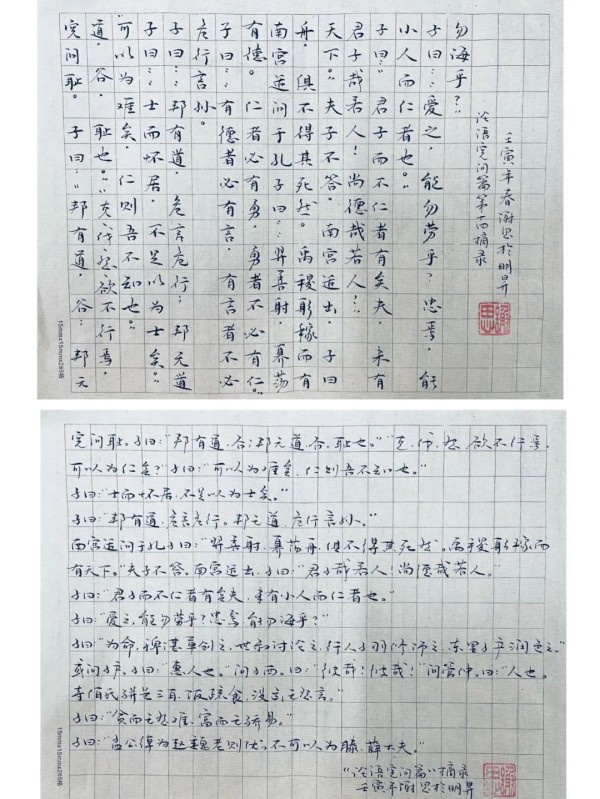 宪问耻。子曰：“邦有道，谷；邦无
道，谷，耻也。”“克伐怨欲不行焉，
可以为难矣，仁则吾不知也。”
子曰：“士而怀居，不足以为士矣。”
子曰：“邦有道，危言危行；邦无道
危行言孙。
子曰：“有德者必有言，有言者不必
有德。仁者必有勇，勇者不必有仁。”
南宫适问于孔子曰：“羿善射，奡荡
舟，俱不得其死然。禹稷躬稼而有
天下。”夫子不答。南宫适出，子曰
君子哉若人！尚德哉若人！”
子曰：“君子而不仁者有矣夫，未有
小人而仁者也。”
子曰：“爱之，能勿劳乎？忠焉，能
勿诲乎？”
论语宪问篇第十四摘录
壬寅年春谢思於明昇
15mmx15mmx285格
宪问耻。子曰：“邦有道，谷；邦无道，谷，耻也。”“克、伐、怨、欲不行焉，
可以为仁矣？”子曰：“可以为难矣，仁则吾不知也。”
子曰：“士而怀居，不足以为士矣。”
子曰：“邦有道，危言危行。邦无道，危行言孙。”
南宫适问于孔子曰：“羿善射，奡荡舟，俱不得其死然。禹稷躬稼而
有天下。”夫子不答。南宫适出，子曰：“君子哉若人！尚德哉若人。”
子曰：“君子而不仁者有矣夫，未有小人而仁者也。”
子曰：“爱之，能勿劳乎？忠焉，能勿诲乎？”
子曰：“为命，裨谌草创之，世叔讨论之，行人子羽修饰之，东里子产润色之。”
或问子产。子曰：“惠人也。”问子西。曰：“彼哉！彼哉！”问管仲。曰：“人也。
夺伯氏骈邑三百，饭疏食，没齿无怨言。”
子曰：“贫而无怨难，富而无骄易。”
子曰：“孟公绰为赵魏老则优，不可以为滕、薛大夫。”
“论语宪问篇”摘录
壬寅年谢思於明昇
15mmx15mmx285格